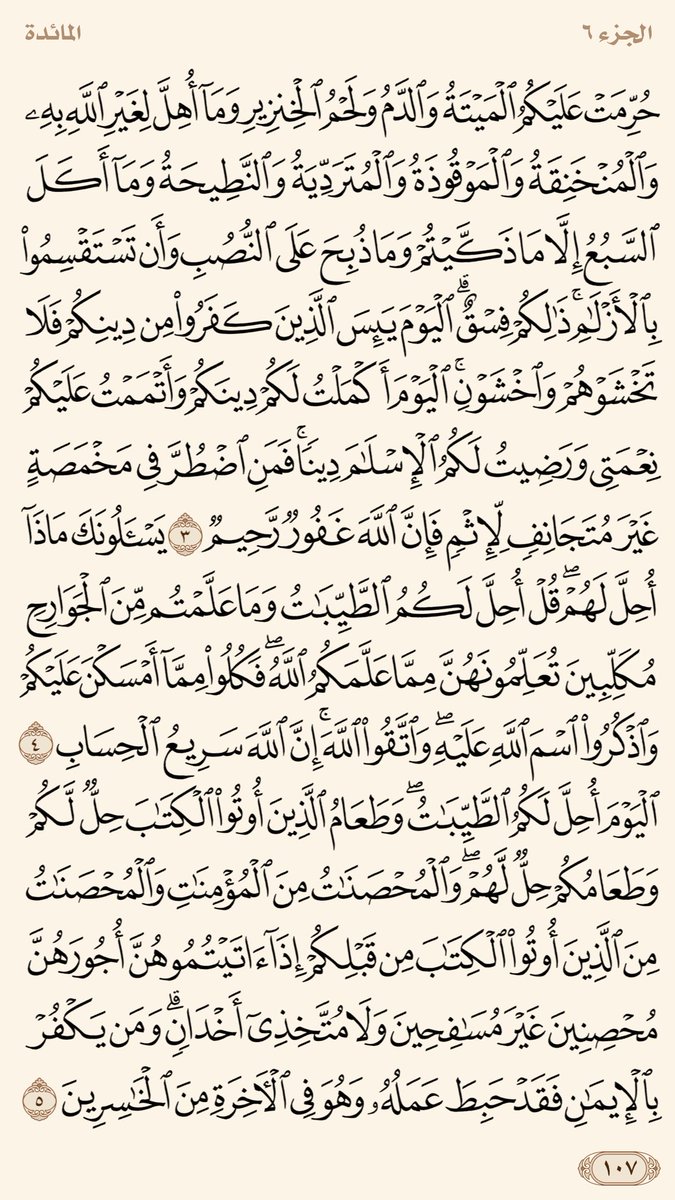 الجزء ٦
المائدة
حُرِّمَتۡ عَلَيۡكُمُ ٱلۡمَيۡتَةُ وَٱلدَّمُ وَلَحۡمُ ٱلۡخِنزِيرِ وَمَآ أُهِلَّ لِغَيۡرِ ٱللَّهِ بِهِۦ
وَٱلۡمُنۡخَنِقَةُ وَٱلۡمَوۡقُوذَةُ وَٱلۡمُتَرَدِّيَةُ وَٱلنَّطِيحَةُ وَمَآ أَكَلَ
ٱلسَّبُعُ إِلَّا مَا ذَكَّيۡتُمۡ وَمَا ذُبِحَ عَلَى ٱلنُّصُبِ وَأَن تَسۡتَقۡسِمُواْ
بِٱلۡأَزۡلَٰمِۚ ذَٰلِكُمۡ فِسۡقٌۗ ٱلۡيَوۡمَ يَئِسَ ٱلَّذِينَ كَفَرُواْ مِن دِينِكُمۡ فَلَا
تَخۡشَوۡهُمۡ وَٱخۡشَوۡنِۚ ٱلۡيَوۡمَ أَكۡمَلۡتُ لَكُمۡ دِينَكُمۡ وَأَتۡمَمۡتُ عَلَيۡكُمۡ
نِعۡمَتِي وَرَضِيتُ لَكُمُ ٱلۡإِسۡلَٰمَ دِينٗاۚ فَمَنِ ٱضۡطُرَّ فِي مَخۡمَصَةٍ
غَيۡرَ مُتَجَانِفٖ لِّإِثۡمٖ فَإِنَّ ٱللَّهَ غَفُورٞ رَّحِيمٞ ٣ يَسۡـَٔلُونَكَ مَاذَآ
أُحِلَّ لَهُمۡۖ قُلۡ أُحِلَّ لَكُمُ ٱلطَّيِّبَٰتُ وَمَا عَلَّمۡتُم مِّنَ ٱلۡجَوَارِحِ
مُكَلِّبِينَ تُعَلِّمُونَهُنَّ مِمَّا عَلَّمَكُمُ ٱللَّهُۖ فَكُلُواْ مِمَّآ أَمۡسَكۡنَ عَلَيۡكُمۡ
وَٱذۡكُرُواْ ٱسۡمَ ٱللَّهِ عَلَيۡهِۖ وَٱتَّقُواْ ٱللَّهَۚ إِنَّ ٱللَّهَ سَرِيعُ ٱلۡحِسَابِ ٤
ٱلۡيَوۡمَ أُحِلَّ لَكُمُ ٱلطَّيِّبَٰتُۖ وَطَعَامُ ٱلَّذِينَ أُوتُواْ ٱلۡكِتَٰبَ حِلّٞ لَّكُمۡ
وَطَعَامُكُمۡ حِلّٞ لَّهُمۡۖ وَٱلۡمُحۡصَنَٰتُ مِنَ ٱلۡمُؤۡمِنَٰتِ وَٱلۡمُحۡصَنَٰتُ
مِنَ ٱلَّذِينَ أُوتُواْ ٱلۡكِتَٰبَ مِن قَبۡلِكُمۡ إِذَآ ءَاتَيۡتُمُوهُنَّ أُجُورَهُنَّ
مُحۡصِنِينَ غَيۡرَ مُسَٰفِحِينَ وَلَا مُتَّخِذِيٓ أَخۡدَانٖۗ وَمَن يَكۡفُرۡ
بِٱلۡإِيمَٰنِ فَقَدۡ حَبِطَ عَمَلُهُۥ وَهُوَ فِي ٱلۡأٓخِرَةِ مِنَ ٱلۡخَٰسِرِينَ ٥
١٠٧